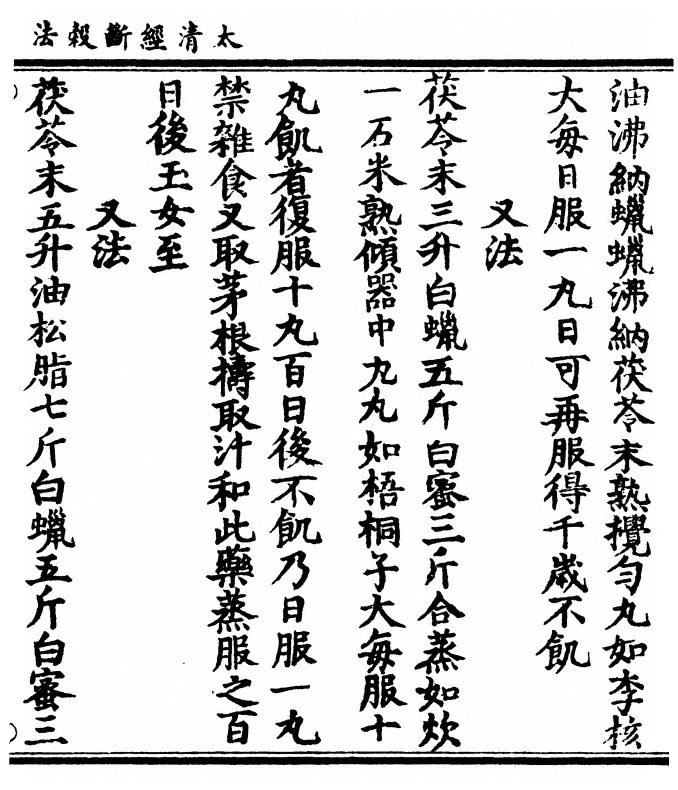 太清經斷穀法
油沸納蠟蠟沸納茯苓末熟攪勻丸如李核
大每日服一丸日可再服得千歲不飢
又法
茯苓末三升白蠟五斤白蜜三斤合蒸如炊
一石米熟傾器中丸丸如梧桐子大每服十
丸飢者復服十丸百日後不飢乃日服一丸
禁雜食又取茅根擣取汁和此藥蒸服之百
日後玉女至
又法
茯苓末五升油松脂七斤白蠟五斤白蜜三